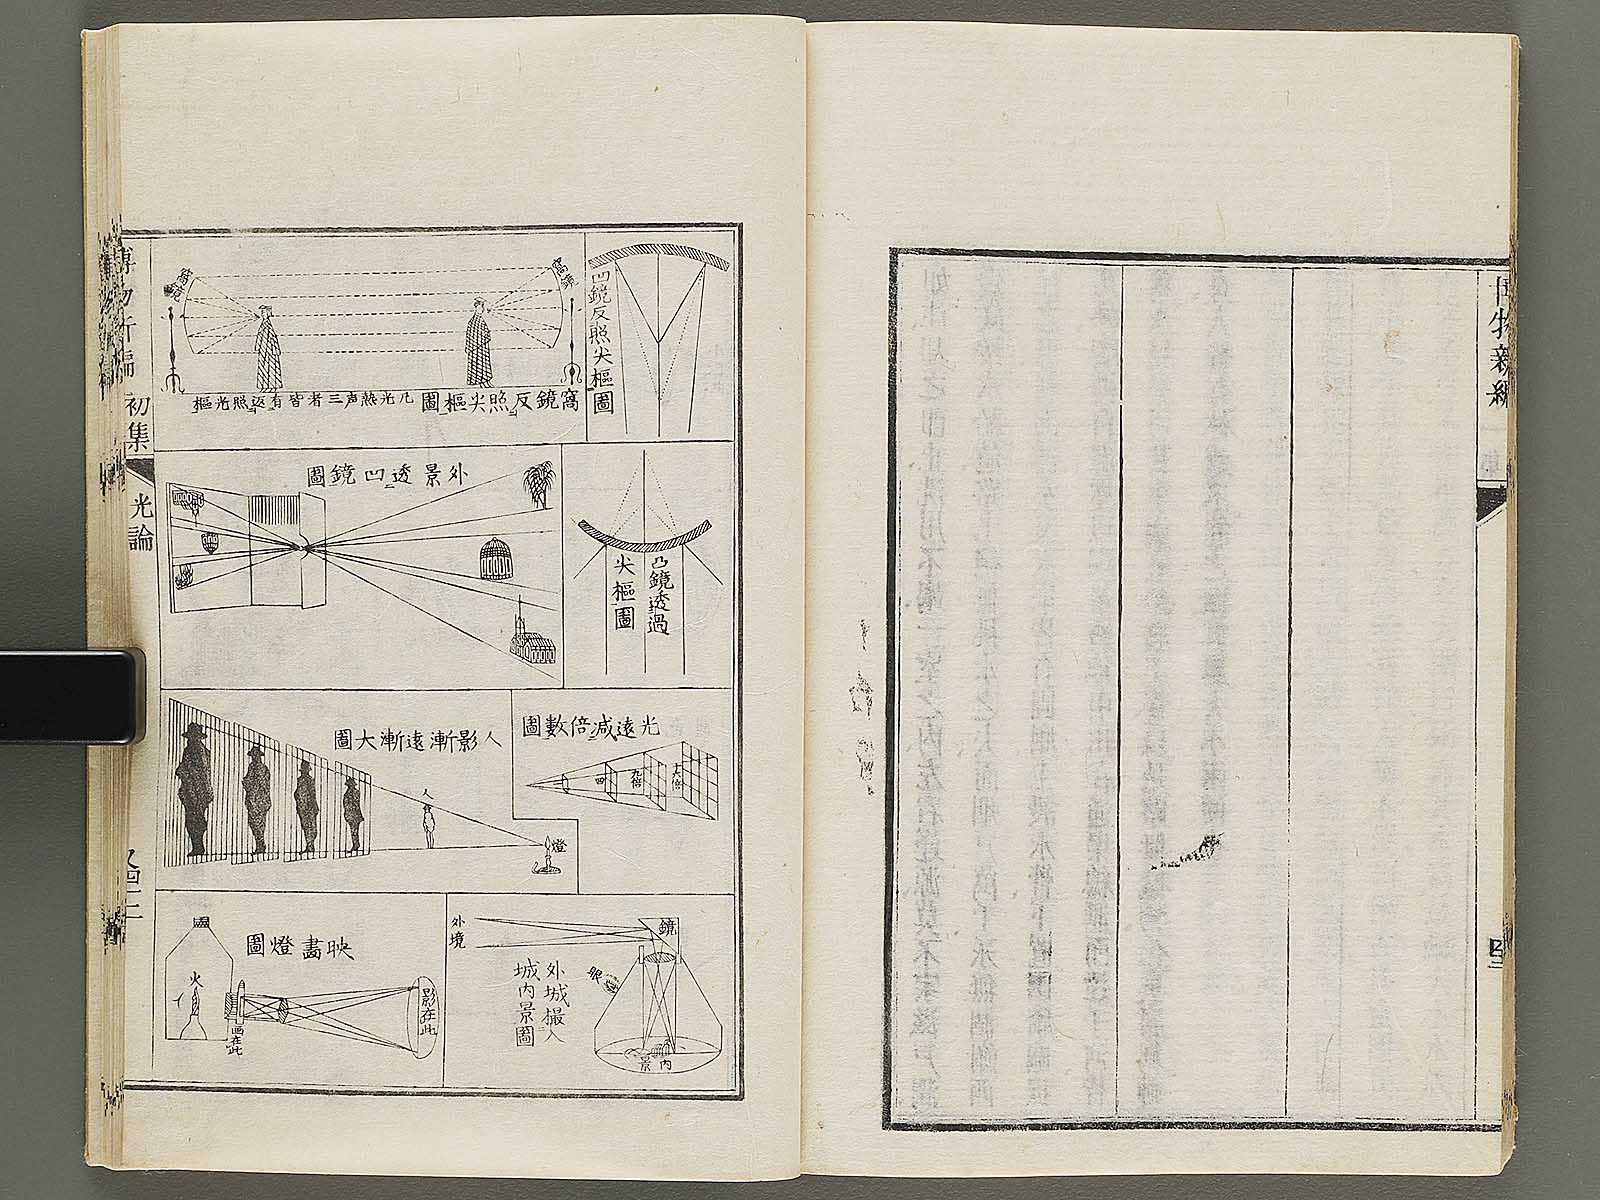 博物新編
四三
凹鏡反照尖樞圖
窩鏡
窩鏡
窩鏡反照尖樞圖
凡光熱声三者皆有返照光樞
凸鏡透過
尖樞圖
外景透凹鏡圖
光遠减倍數圖
四
九倍
十六倍
人影漸遠漸大圖
人
燈
外境
鏡
眼
外城撮入
城内景圖
内景
映畵燈圖
火
画在此
影在此
博物新編
初集
光論
又四十二